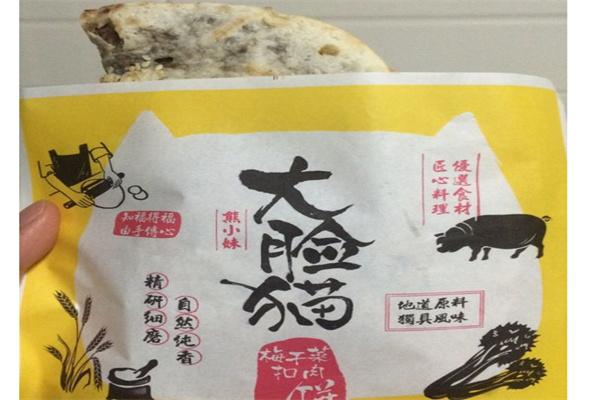 大脸猫
熊小妹
優選食材
匠心料理
知福得福
由手傳心
精研細磨
自然純香
地道原料
獨具風味
梅干菜
扣肉
饼